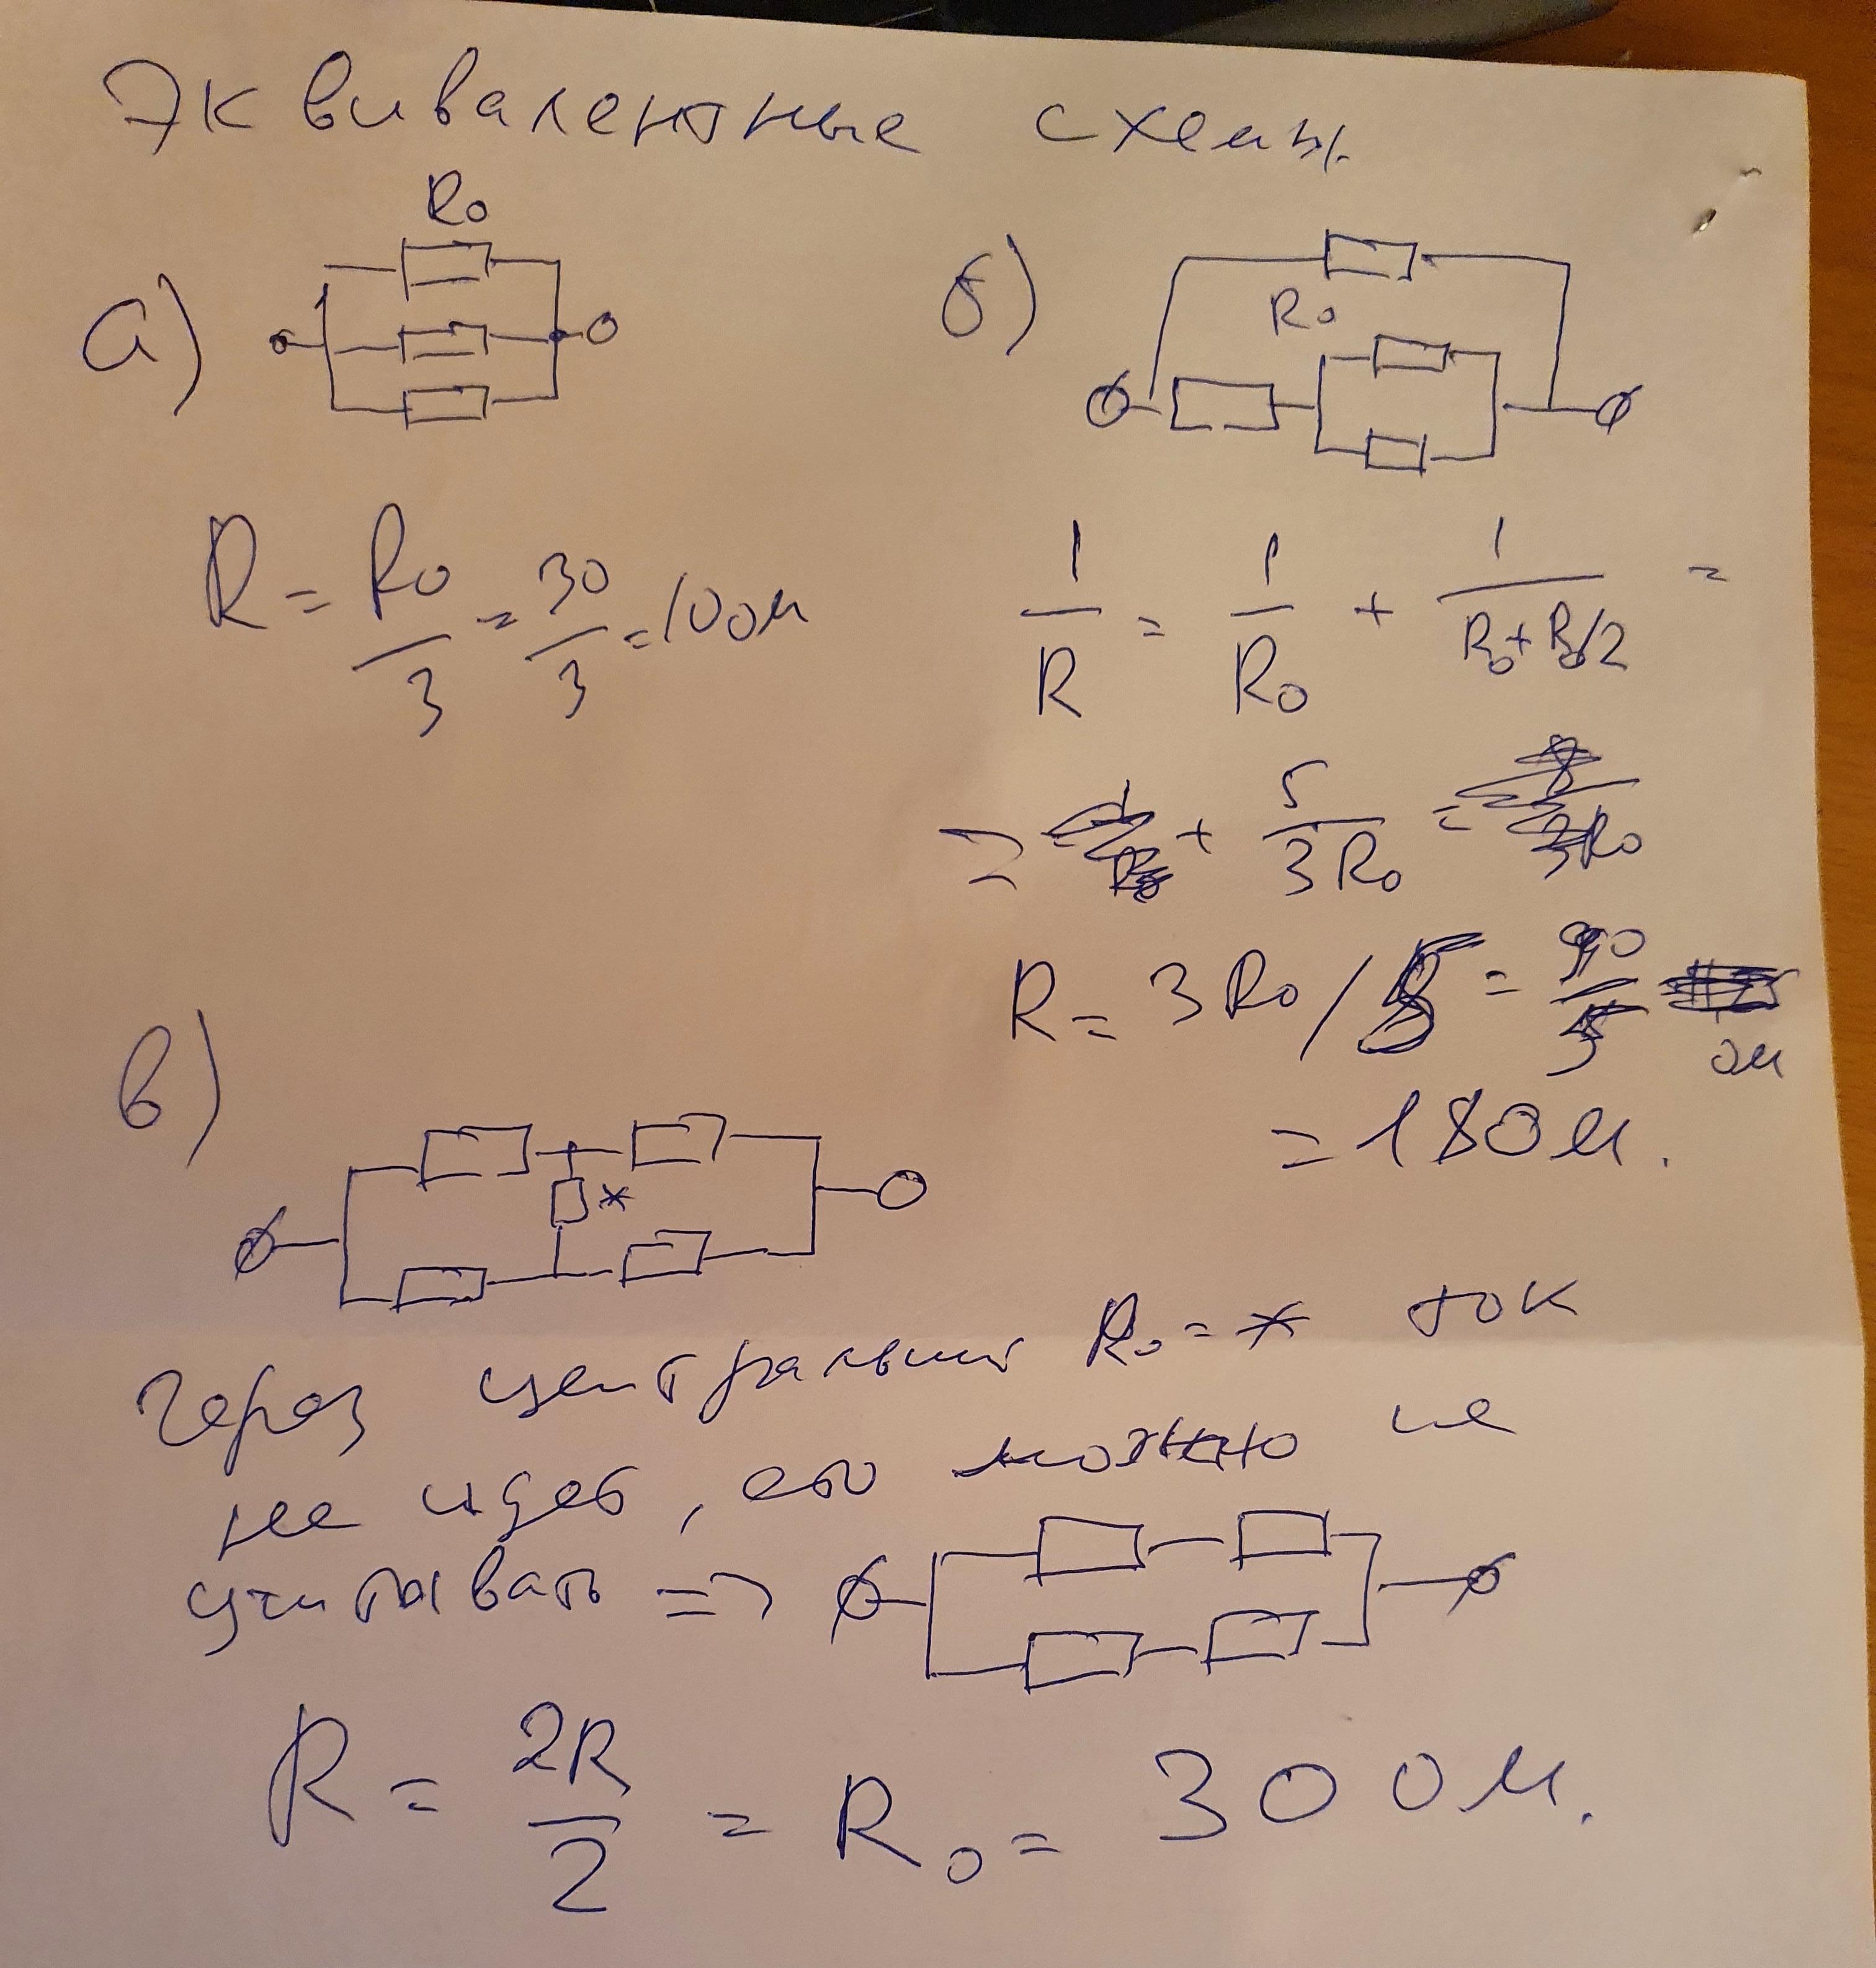 Эквивалентные схемы.
а)
R₀
R = R₀/3 = 30/3 = 10 Ом
б)
R₀
1/R = 1/R₀ + 1/(R₀+R₀/2) =
= + 5/3R₀ =
R = 3R₀/5 = 90/5 Ом
= 18 Ом.
в)
*
Через центральный R₀ = * ток
не идет, его можно не
учитывать =>
R = 2R/2 = R₀ = 30 Ом.